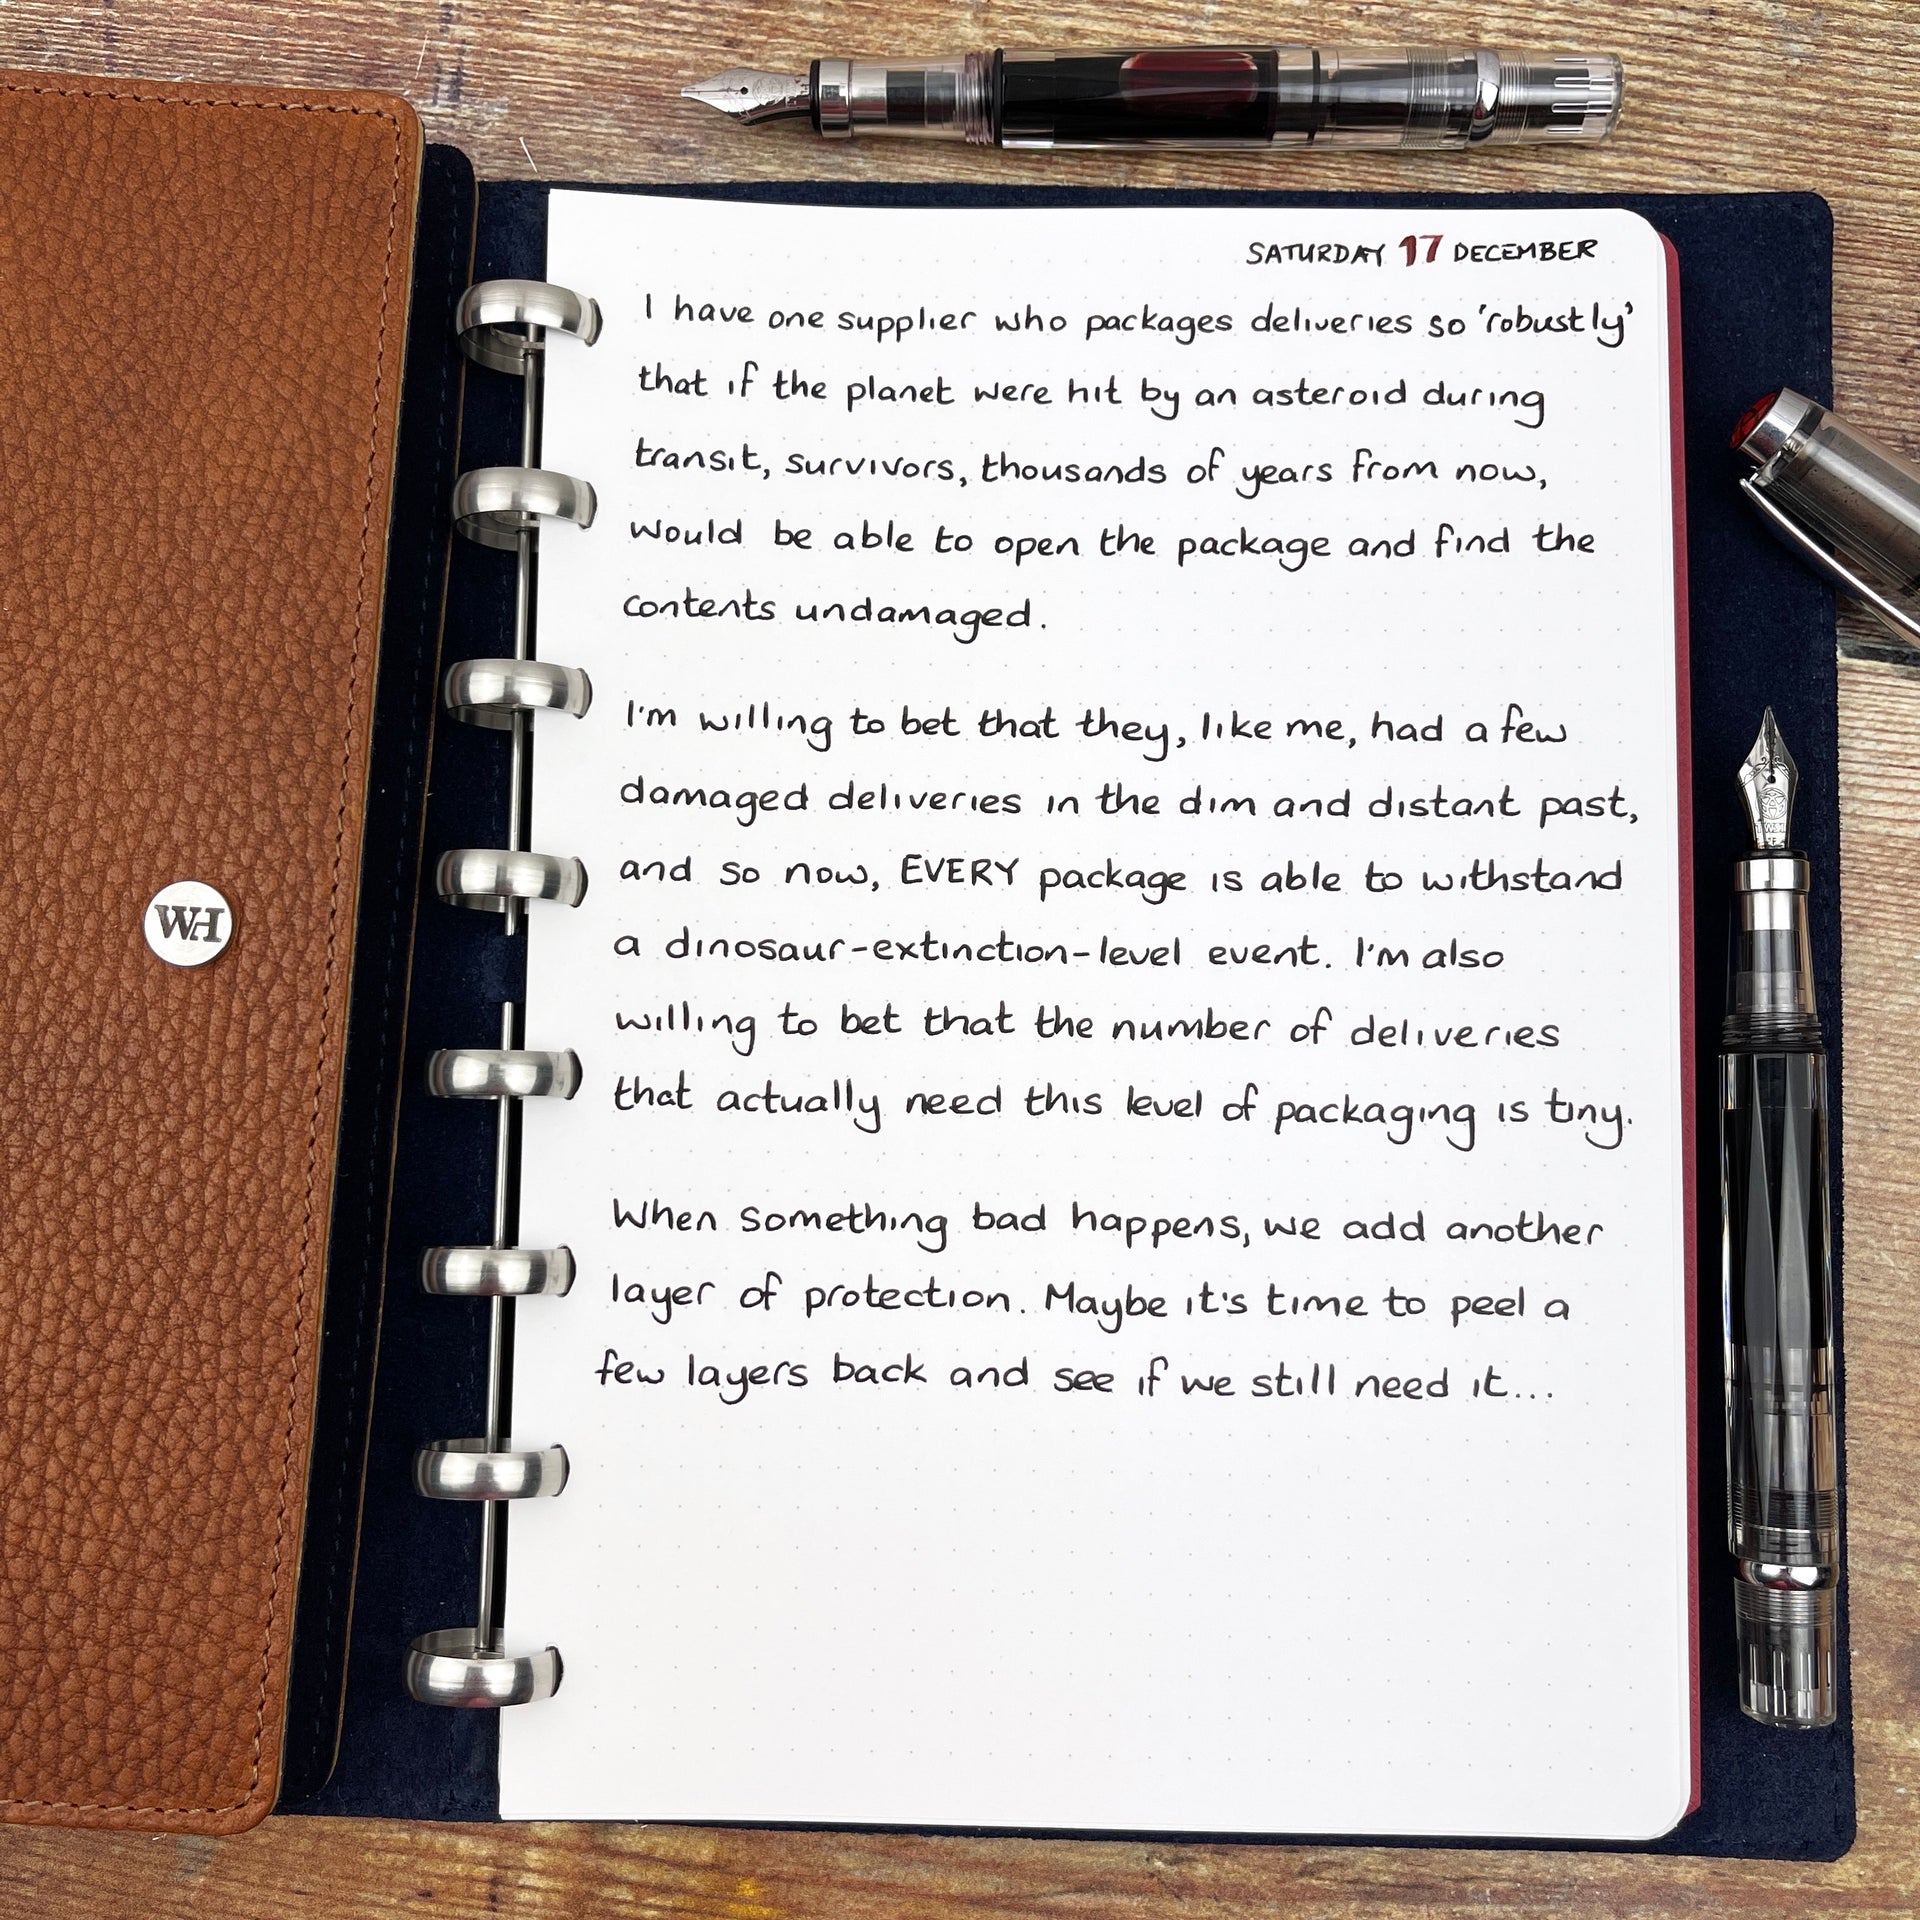 SATURDAY 17 DECEMBER
I have one supplier who packages deliveries so 'robustly'
that if the planet were hit by an asteroid during
transit, survivors, thousands of years from now,
would be able to open the package and find the
contents undamaged.
I'm willing to bet that they, like me, had a few
damaged deliveries in the dim and distant past,
and so now, EVERY package is able to withstand
a dinosaur-extinction-level event. I'm also
willing to bet that the number of deliveries
that actually need this level of packaging is tiny.
When something bad happens, we add another
layer of protection. Maybe it's time to peel a
few layers back and see if we still need it...
WH